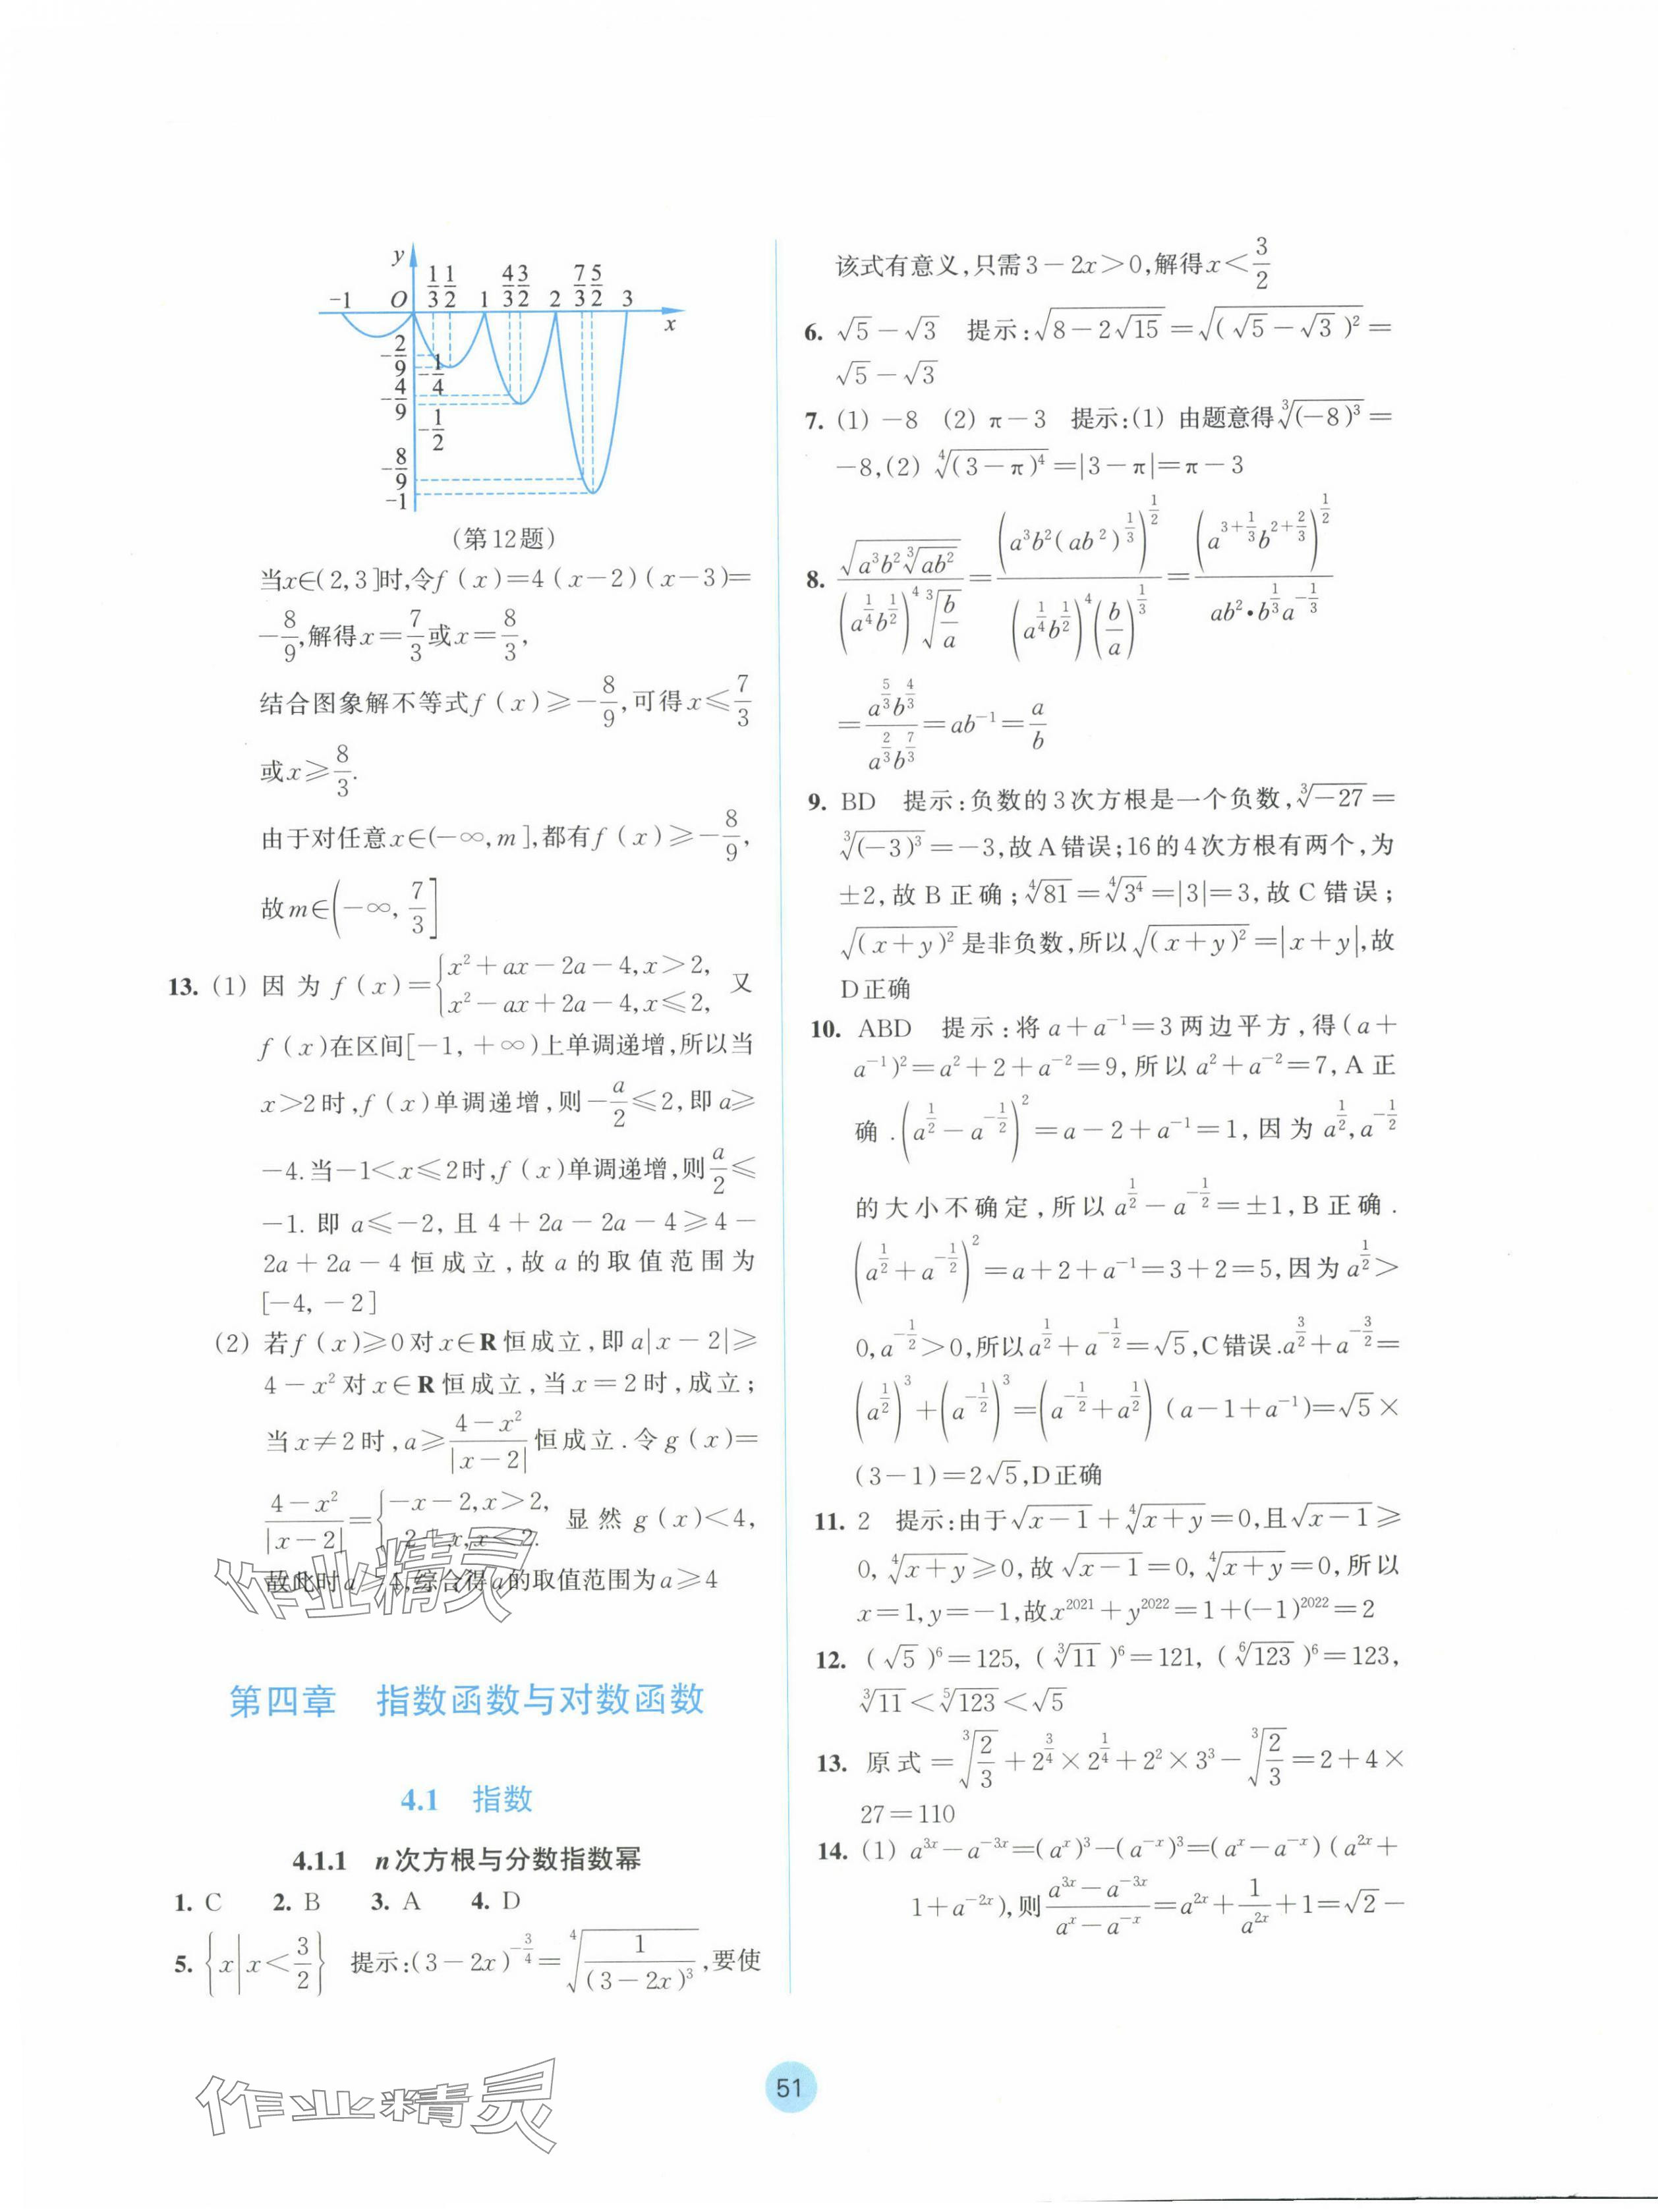 y
1/3 1/2 4/3 3/2 7/3 5/2
-1 O 1 2 3
x
-2/9
-1/4
-4/9
-1/2
-8/9
-1
(第12题)
当x∈(2,3]时,令f(x)=4(x-2)(x-3)=
-8/9,解得x=7/3或x=8/3,
结合图象解不等式f(x)≥-8/9,可得x≤7/3
或x≥8/3.
由于对任意x∈(-∞,m],都有f(x)≥-8/9,
故m∈(-∞,7/3]
13. (1) 因为f(x)={x²+ax-2a-4,x>2, x²-ax+2a-4,x≤2, 又
f(x)在区间[-1,+∞)上单调递增,所以当
x>2时,f(x)单调递增,则-a/2≤2,即a≥
-4.当-1<x≤2时,f(x)单调递增,则a/2≤
-1.即a≤-2,且4+2a-2a-4≥4-
2a+2a-4恒成立,故a的取值范围为
[-4,-2]
(2) 若f(x)≥0对x∈R恒成立,即a|x-2|≥
4-x²对x∈R恒成立,当x=2时,成立;
当x≠2时,a≥(4-x²)/|x-2|恒成立.令g(x)=
(4-x²)/|x-2|={-x-2,x>2, 2+x,x<2. 显然g(x)<4,
故此时a≥4,综合得a的取值范围为a≥4
作业精灵
第四章 指数函数与对数函数
4.1 指数
4.1.1 n次方根与分数指数幂
1. C 2. B 3. A 4. D
5. {x|x<3/2} 提示:(3-2x)^(-3/4)=⁴√(1/(3-2x)³),要使
该式有意义,只需3-2x>0,解得x<3/2
6. √5-√3 提示:√(8-2√15)=√((√5-√3)²)=
√5-√3
7. (1) -8 (2) π-3 提示:(1) 由题意得³√((-8)³)=
-8,(2) ⁴√((3-π)⁴)=|3-π|=π-3
8. √(a³b²³√(ab²))/((a^(1/4)b^(1/2))⁴³√(b/a))=(a³b²(ab²)^(1/3))^(1/2)/((a^(1/4)b^(1/2))⁴(b/a)^(1/3))=(a^(3+1/3)b^(2+2/3))^(1/2)/(ab²•b^(1/3)a^(-1/3))
=a^(5/3)b^(4/3)/(a^(2/3)b^(7/3))=ab⁻¹=a/b
9. BD 提示:负数的3次方根是一个负数,³√(-27)=
³√((-3)³)=-3,故A错误;16的4次方根有两个,为
±2,故B正确;⁴√81=⁴√(3⁴)=|3|=3,故C错误;
√((x+y)²)是非负数,所以√((x+y)²)=|x+y|,故
D正确
10. ABD 提示:将a+a⁻¹=3两边平方,得(a+
a⁻¹)²=a²+2+a⁻²=9,所以a²+a⁻²=7,A正
确.(a^(1/2)-a^(-1/2))²=a-2+a⁻¹=1,因为a^(1/2),a^(-1/2)
的大小不确定,所以a^(1/2)-a^(-1/2)=±1,B正确.
(a^(1/2)+a^(-1/2))²=a+2+a⁻¹=3+2=5,因为a^(1/2)>
0,a^(-1/2)>0,所以a^(1/2)+a^(-1/2)=√5,C错误.a^(3/2)+a^(-3/2)=
(a^(1/2))³+(a^(-1/2))³=(a^(-1/2)+a^(1/2))(a-1+a⁻¹)=√5×
(3-1)=2√5,D正确
11. 2 提示:由于√(x-1)+⁴√(x+y)=0,且√(x-1)≥
0,⁴√(x+y)≥0,故√(x-1)=0,⁴√(x+y)=0,所以
x=1,y=-1,故x²⁰²¹+y²⁰²²=1+(-1)²⁰²²=2
12. (√5)⁶=125,(³√11)⁶=121,(⁶√123)⁶=123,
³√11<⁵√123<√5
13. 原式=³√(2/3)+2^(3/4)×2^(1/4)+2²×3³-³√(2/3)=2+4×
27=110
14. (1) a³ˣ-a⁻³ˣ=(aˣ)³-(a⁻ˣ)³=(aˣ-a⁻ˣ)(a²ˣ+
1+a⁻²ˣ),则(a³ˣ-a⁻³ˣ)/(aˣ-a⁻ˣ)=a²ˣ+1/a²ˣ+1=√2-
作业精灵
51